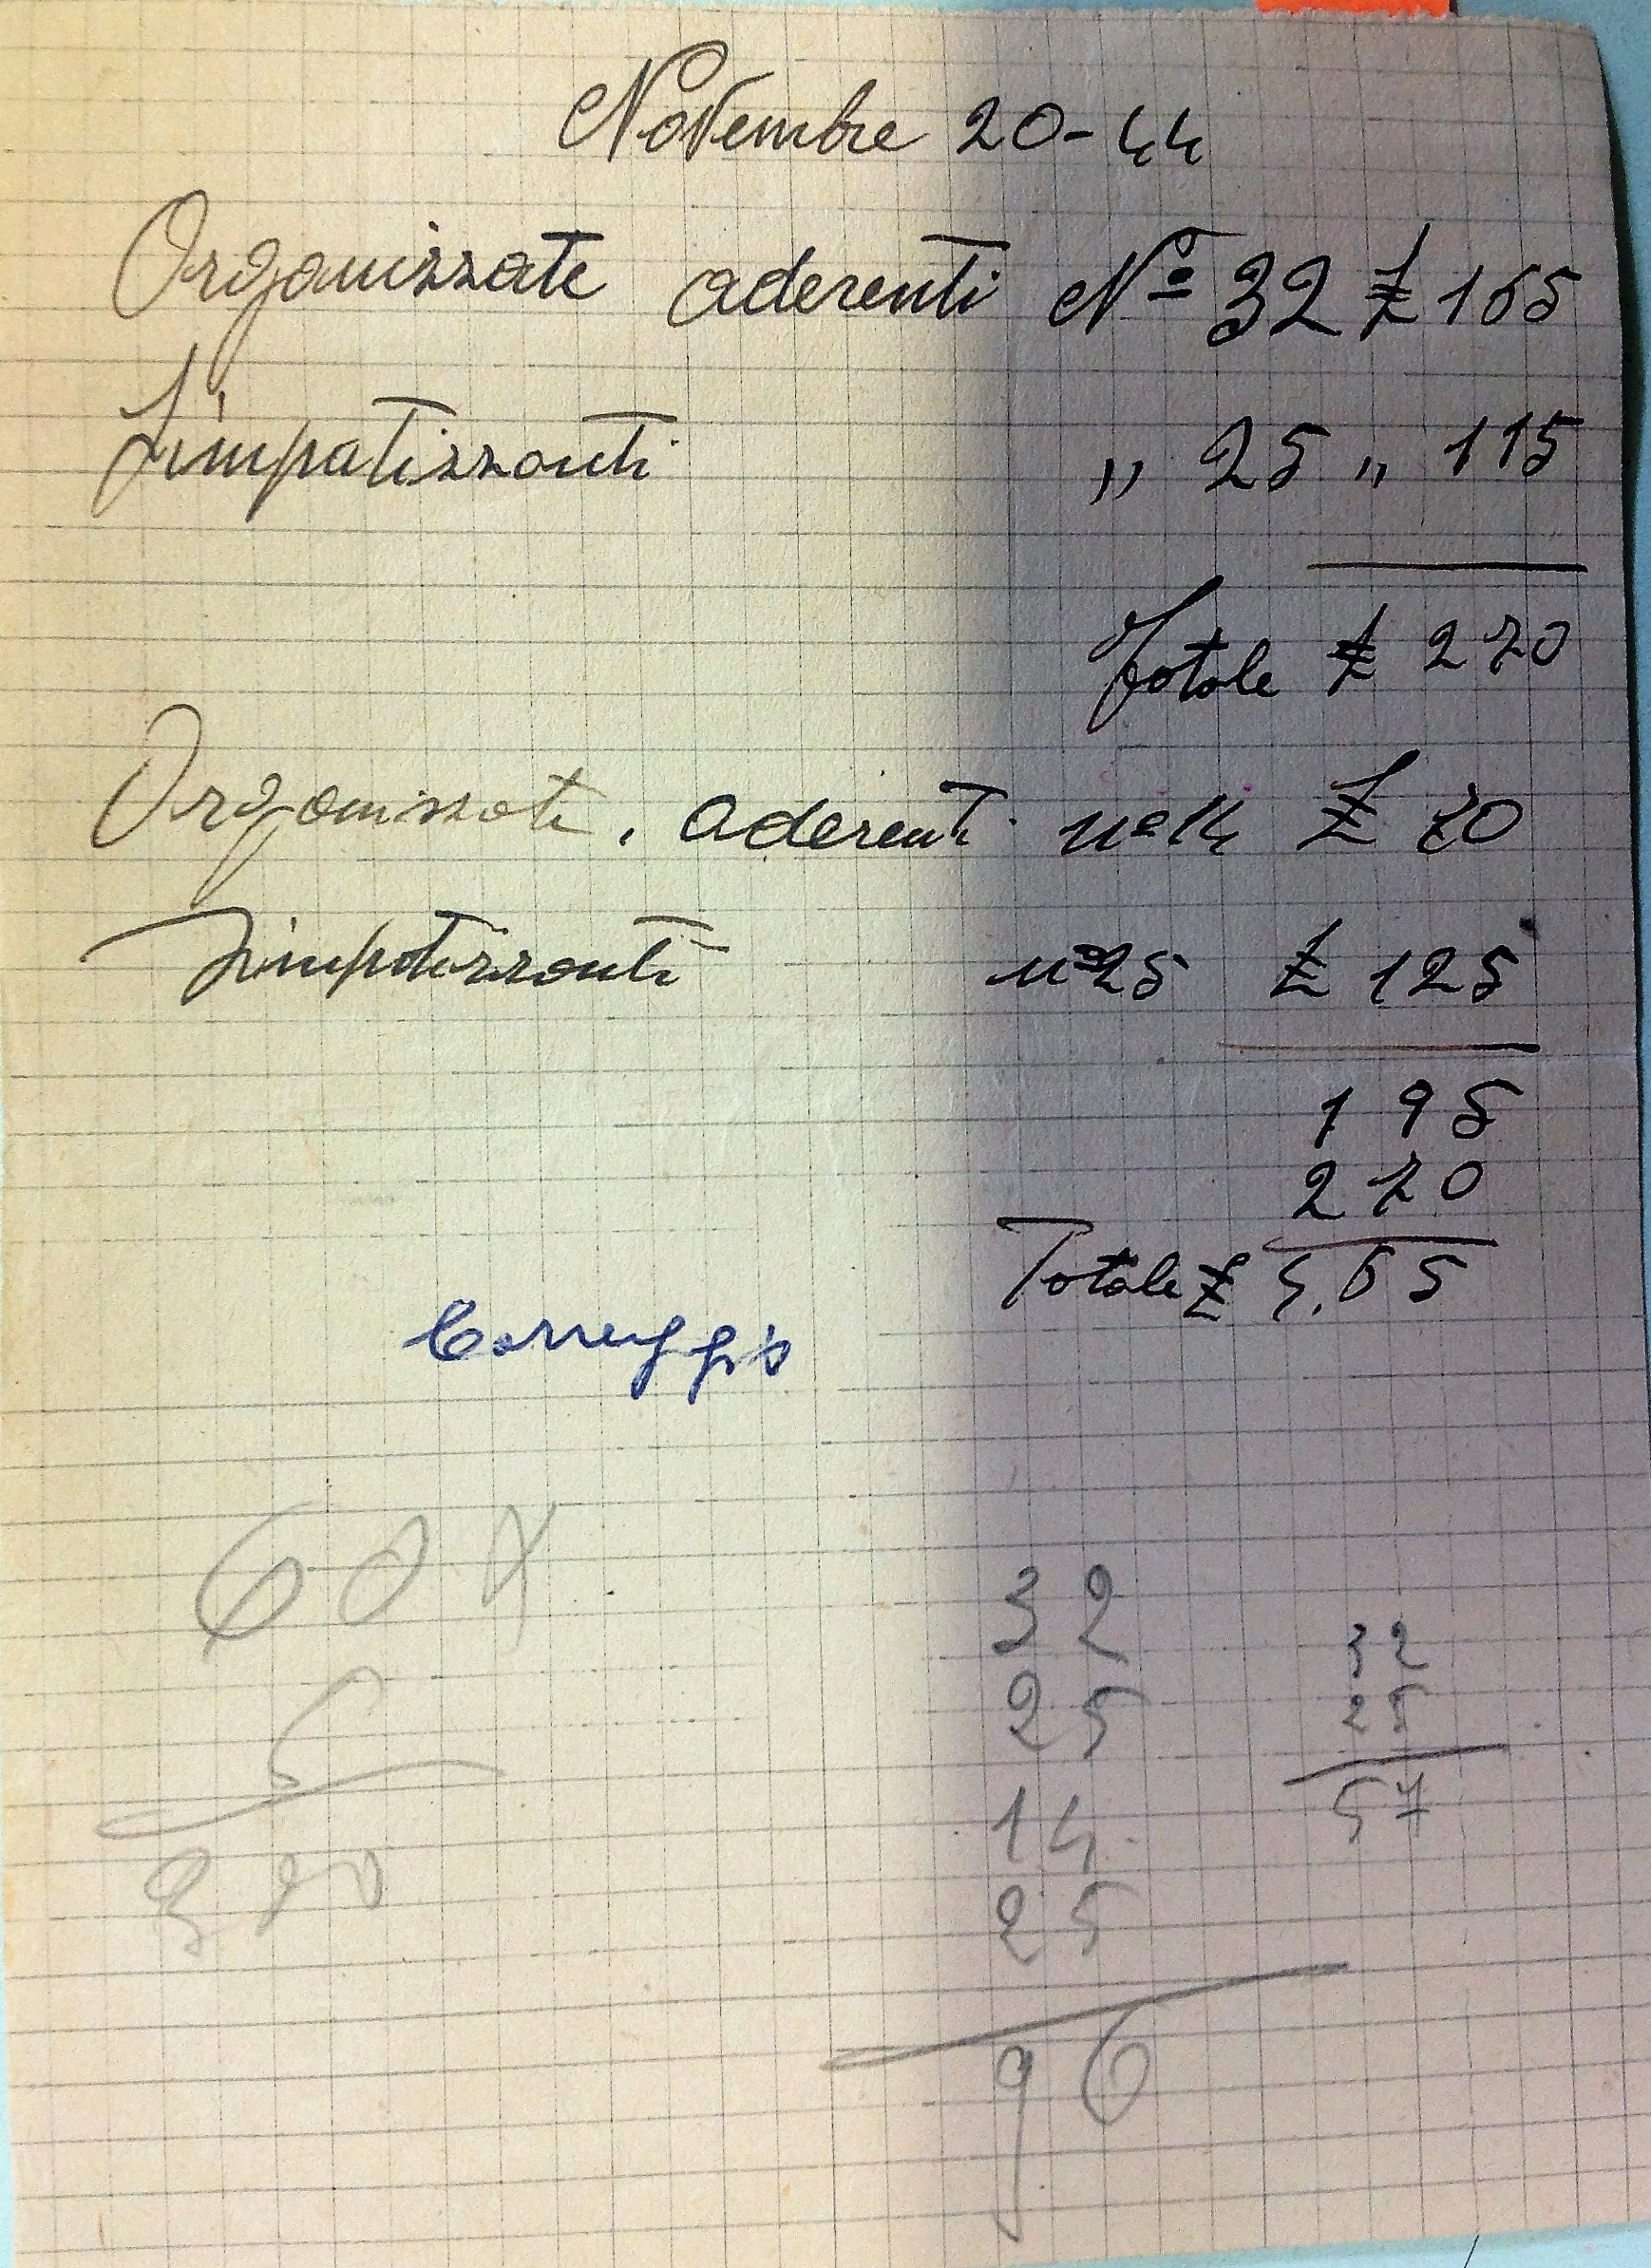 Novembre 20-44
Organizzate aderenti Nº 32 £ 165
Simpatizzanti " 25 " 115
Totale £ 270
Organizzate. aderenti nº 14 £ 70
Simpatizzanti nº 25 £ 125
195
270
Totale £ 4.65
Correggio
60 x
5
32
25
14
25
96
32
25
57